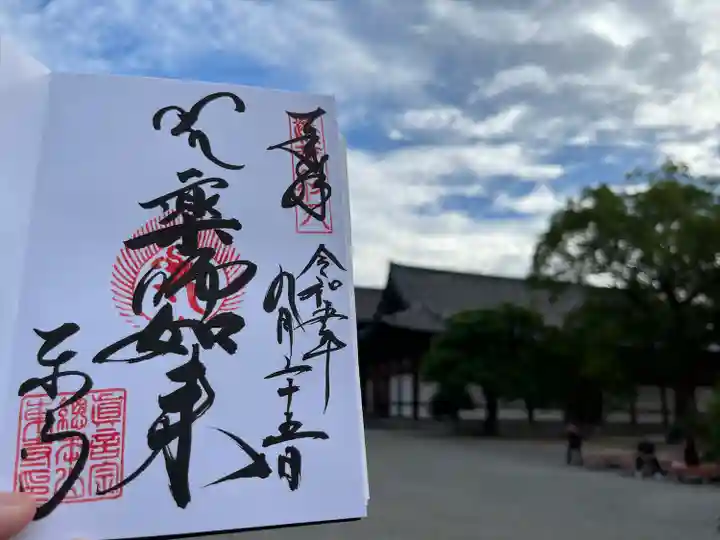 奉拝
令和五年
九月二十五日
薬師如来
東寺
真言宗
総本山
東寺印